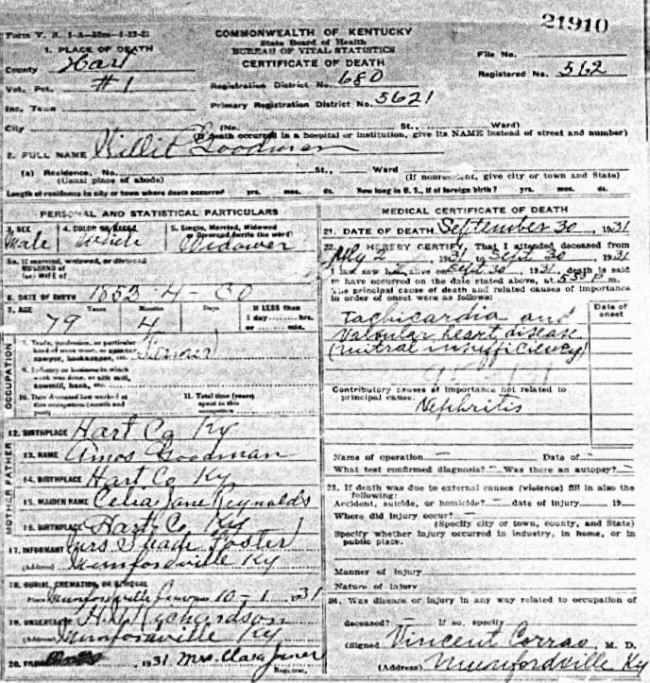 21910
Form V. S. 1-A
COMMONWEALTH OF KENTUCKY
State Board of Health
BUREAU OF VITAL STATISTICS
CERTIFICATE OF DEATH
1. PLACE OF DEATH
County Hart
Vot. Pct. #1
Inc. Town
City (No. St., Ward)
File No.
Registered No. 562
Registration District No. 680
Primary Registration District No. 5621
(If death occurred in a hospital or institution, give its NAME instead of street and number)
2. FULL NAME Goodman
(a) Residence, No. St., Ward
(Usual place of abode) (If nonresident, give city or town and State)
Length of residence in city or town where death occurred yrs. mos. ds. How long in U. S., if of foreign birth? yrs. mos. ds.
PERSONAL AND STATISTICAL PARTICULARS
3. SEX Male
4. COLOR OR RACE White
5. Single, Married, Widowed or Divorced (write the word) Widower
5a. If married, widowed, or divorced
HUSBAND of
(or) WIFE of
6. DATE OF BIRTH 1853-4-
7. AGE Years Months Days If LESS than
79 4 1 day hrs.
or min.
OCCUPATION
8. Trade, profession, or particular
kind of work done, as
sawyer, bookkeeper, etc. Farmer
9. Industry or business in which
work was done, as silk mill,
sawmill, bank, etc.
10. Date deceased last worked at
this occupation (month and
year)
11. Total time (years)
spent in this
occupation
12. BIRTHPLACE Hart Co Ky
FATHER
13. NAME Amos Goodman
14. BIRTHPLACE Hart Co Ky
MOTHER
15. MAIDEN NAME Celia Jane Reynolds
16. BIRTHPLACE Hart Co Ky
17. INFORMANT Mrs Foster
(Address) Munfordville Ky
18. BURIAL, CREMATION, OR REMOVAL
Place Munfordville 10-1-31
19. UNDERTAKER Richardson
(Address) Munfordville Ky
20. 1931. Mrs. Clara Joiner
Registrar.
MEDICAL CERTIFICATE OF DEATH
21. DATE OF DEATH September 30, 1931
22. I HEREBY CERTIFY, That I attended deceased from
July 2 1931 to Sept 30 1931
I last saw h alive on Sept 30 1931, death is said
to have occurred on the date stated above, at m.
The principal cause of death and related causes of importance
in order of onset were as follows:
Date of onset
Tachicardia and
Valvular heart disease
(mitral insufficiency)
Contributory causes of importance not related to
principal cause:
Nephritis
Name of operation — Date of —
What test confirmed diagnosis? — Was there an autopsy? —
23. If death was due to external causes (violence) fill in also the
following:
Accident, suicide, or homicide? — date of injury 19
Where did injury occur? —
(Specify city or town, county, and State)
Specify whether injury occurred in industry, in home, or in
public place.
Manner of injury
Nature of injury
24. Was disease or injury in any way related to occupation of
deceased? — If so, specify
(Signed) Vincent Corrao, M. D.
(Address) Munfordville Ky